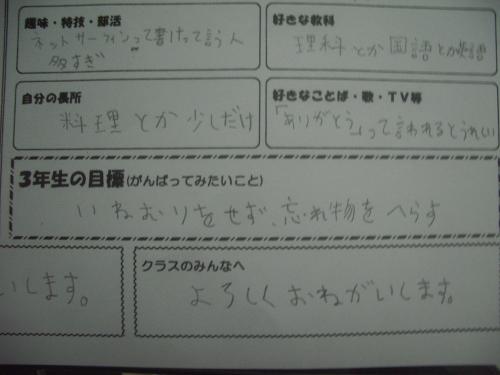 趣味・特技・部活
ネットサーフィンって書けって言う人
多すぎ
好きな教科
理科とか国語とか
自分の長所
料理とか少しだけ
好きなことば・歌・TV等
「ありがとう」って言われるとうれしい
3年生の目標(がんばってみたいこと)
いねむりをせず、忘れ物をへらす
いします。
クラスのみんなへ
よろしくおねがいします。